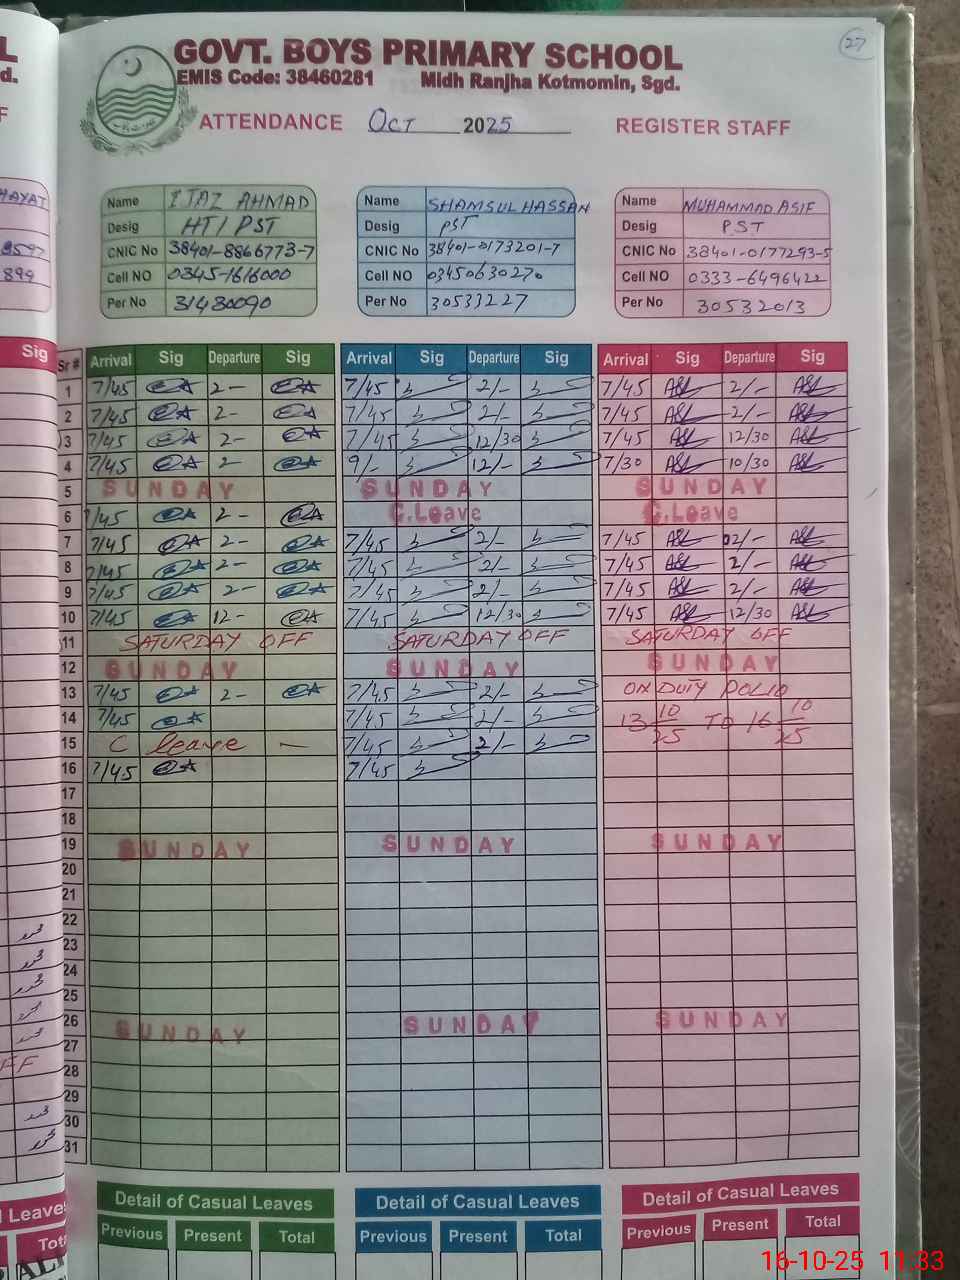 27
GOVT. BOYS PRIMARY SCHOOL
EMIS Code: 38460281 Midh Ranjha Kotmomin, Sgd.
ATTENDANCE Oct 2025 REGISTER STAFF
HAYAT
Name IJAZ AHMAD Name SHAMSUL HASSAN Name MUHAMMAD ASIF
Desig HT/PST Desig PST Desig PST
8597 CNIC No 38401-8866773-7 CNIC No 38401-0173201-7 CNIC No 38401-0177293-5
899 Cell NO 0345-1616000 Cell NO 03450630270 Cell NO 0333-6496422
Per No 31480090 Per No 30533227 Per No 30532013
Sig Sr # Arrival Sig Departure Sig Arrival Sig Departure Sig Arrival Sig Departure Sig
1 7/45 2- 7/45 2/- 7/45 2/-
2 7/45 2- 7/45 2/- 7/45 2/-
3 7/45 2- 7/45 12/30 7/45 12/30
4 7/45 2- 9/- 12/- 7/30 10/30
5 SUNDAY SUNDAY SUNDAY
6 7/45 2- C.Leave C.Leave
7 7/45 2- 7/45 2/- 7/45 02/-
8 7/45 2- 7/45 2/- 7/45 2/-
9 7/45 2- 7/45 2/- 7/45 2/-
10 7/45 12- 7/45 12/30 7/45 12/30
11 SATURDAY OFF SATURDAY OFF SATURDAY OFF
12 SUNDAY SUNDAY SUNDAY
13 7/45 2- 7/45 2/- ON DUTY POLIO
14 7/45 7/45 2/- 13 10/25 TO 16 10/25
15 C leave - 7/45 2/-
16 7/45 7/45
17
18
19 SUNDAY SUNDAY SUNDAY
20
21
22
23
24
25
26 SUNDAY SUNDAY SUNDAY
27
28
29
30
31
Detail of Casual Leaves Detail of Casual Leaves Detail of Casual Leaves
Previous Present Total Previous Present Total Previous Present Total
16-10-25 11:33